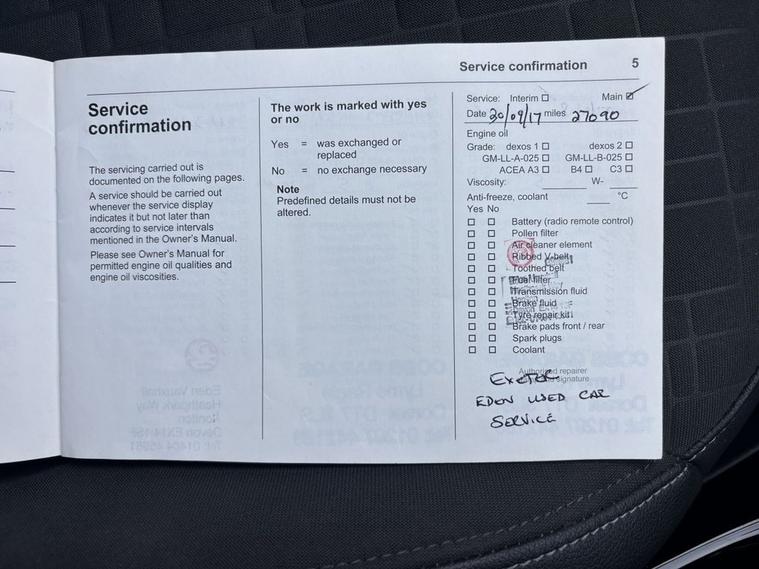 Service confirmation 5
Service
confirmation
The servicing carried out is
documented on the following pages.
A service should be carried out
whenever the service display
indicates it but not later than
according to service intervals
mentioned in the Owner's Manual.
Please see Owner's Manual for
permitted engine oil qualities and
engine oil viscosities.
The work is marked with yes
or no
Yes = was exchanged or
replaced
No = no exchange necessary
Note
Predefined details must not be
altered.
Service: Interim ☐ Main ☑
Date 30/09/17 miles 27090
Engine oil
Grade: dexos 1 ☐ dexos 2 ☐
GM-LL-A-025 ☐ GM-LL-B-025 ☐
ACEA A3 ☐ B4 ☐ C3 ☐
Viscosity: W-
Anti-freeze, coolant °C
Yes No
☐ ☐ Battery (radio remote control)
☐ ☐ Pollen filter
☐ ☐ Air cleaner element
☐ ☐ Ribbed V-belt
☐ ☐ Toothed belt
☐ ☐ Fuel filter
☐ ☐ Transmission fluid
☐ ☐ Brake fluid
☐ ☐ Tyre repair kit
☐ ☐ Brake pads front / rear
☐ ☐ Spark plugs
☐ ☐ Coolant
Authorized repairer
signature
EXETER
EDEN USED CAR
SERVICE